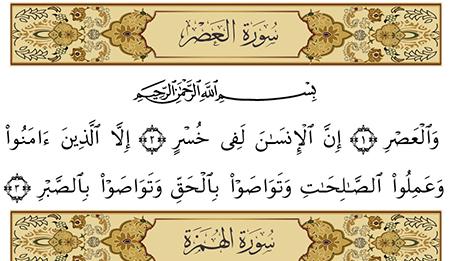 سُورَةُ العَصْرِ
بِسْمِ ٱللَّهِ ٱلرَّحْمَٰنِ ٱلرَّحِيمِ
وَٱلْعَصْرِ ﴿١﴾ إِنَّ ٱلْإِنسَـٰنَ لَفِى خُسْرٍ ﴿٢﴾ إِلَّا ٱلَّذِينَ ءَامَنُوا۟
وَعَمِلُوا۟ ٱلصَّـٰلِحَـٰتِ وَتَوَاصَوْا۟ بِٱلْحَقِّ وَتَوَاصَوْا۟ بِٱلصَّبْرِ ﴿٣﴾
سُورَةُ الهُمَزَةِ